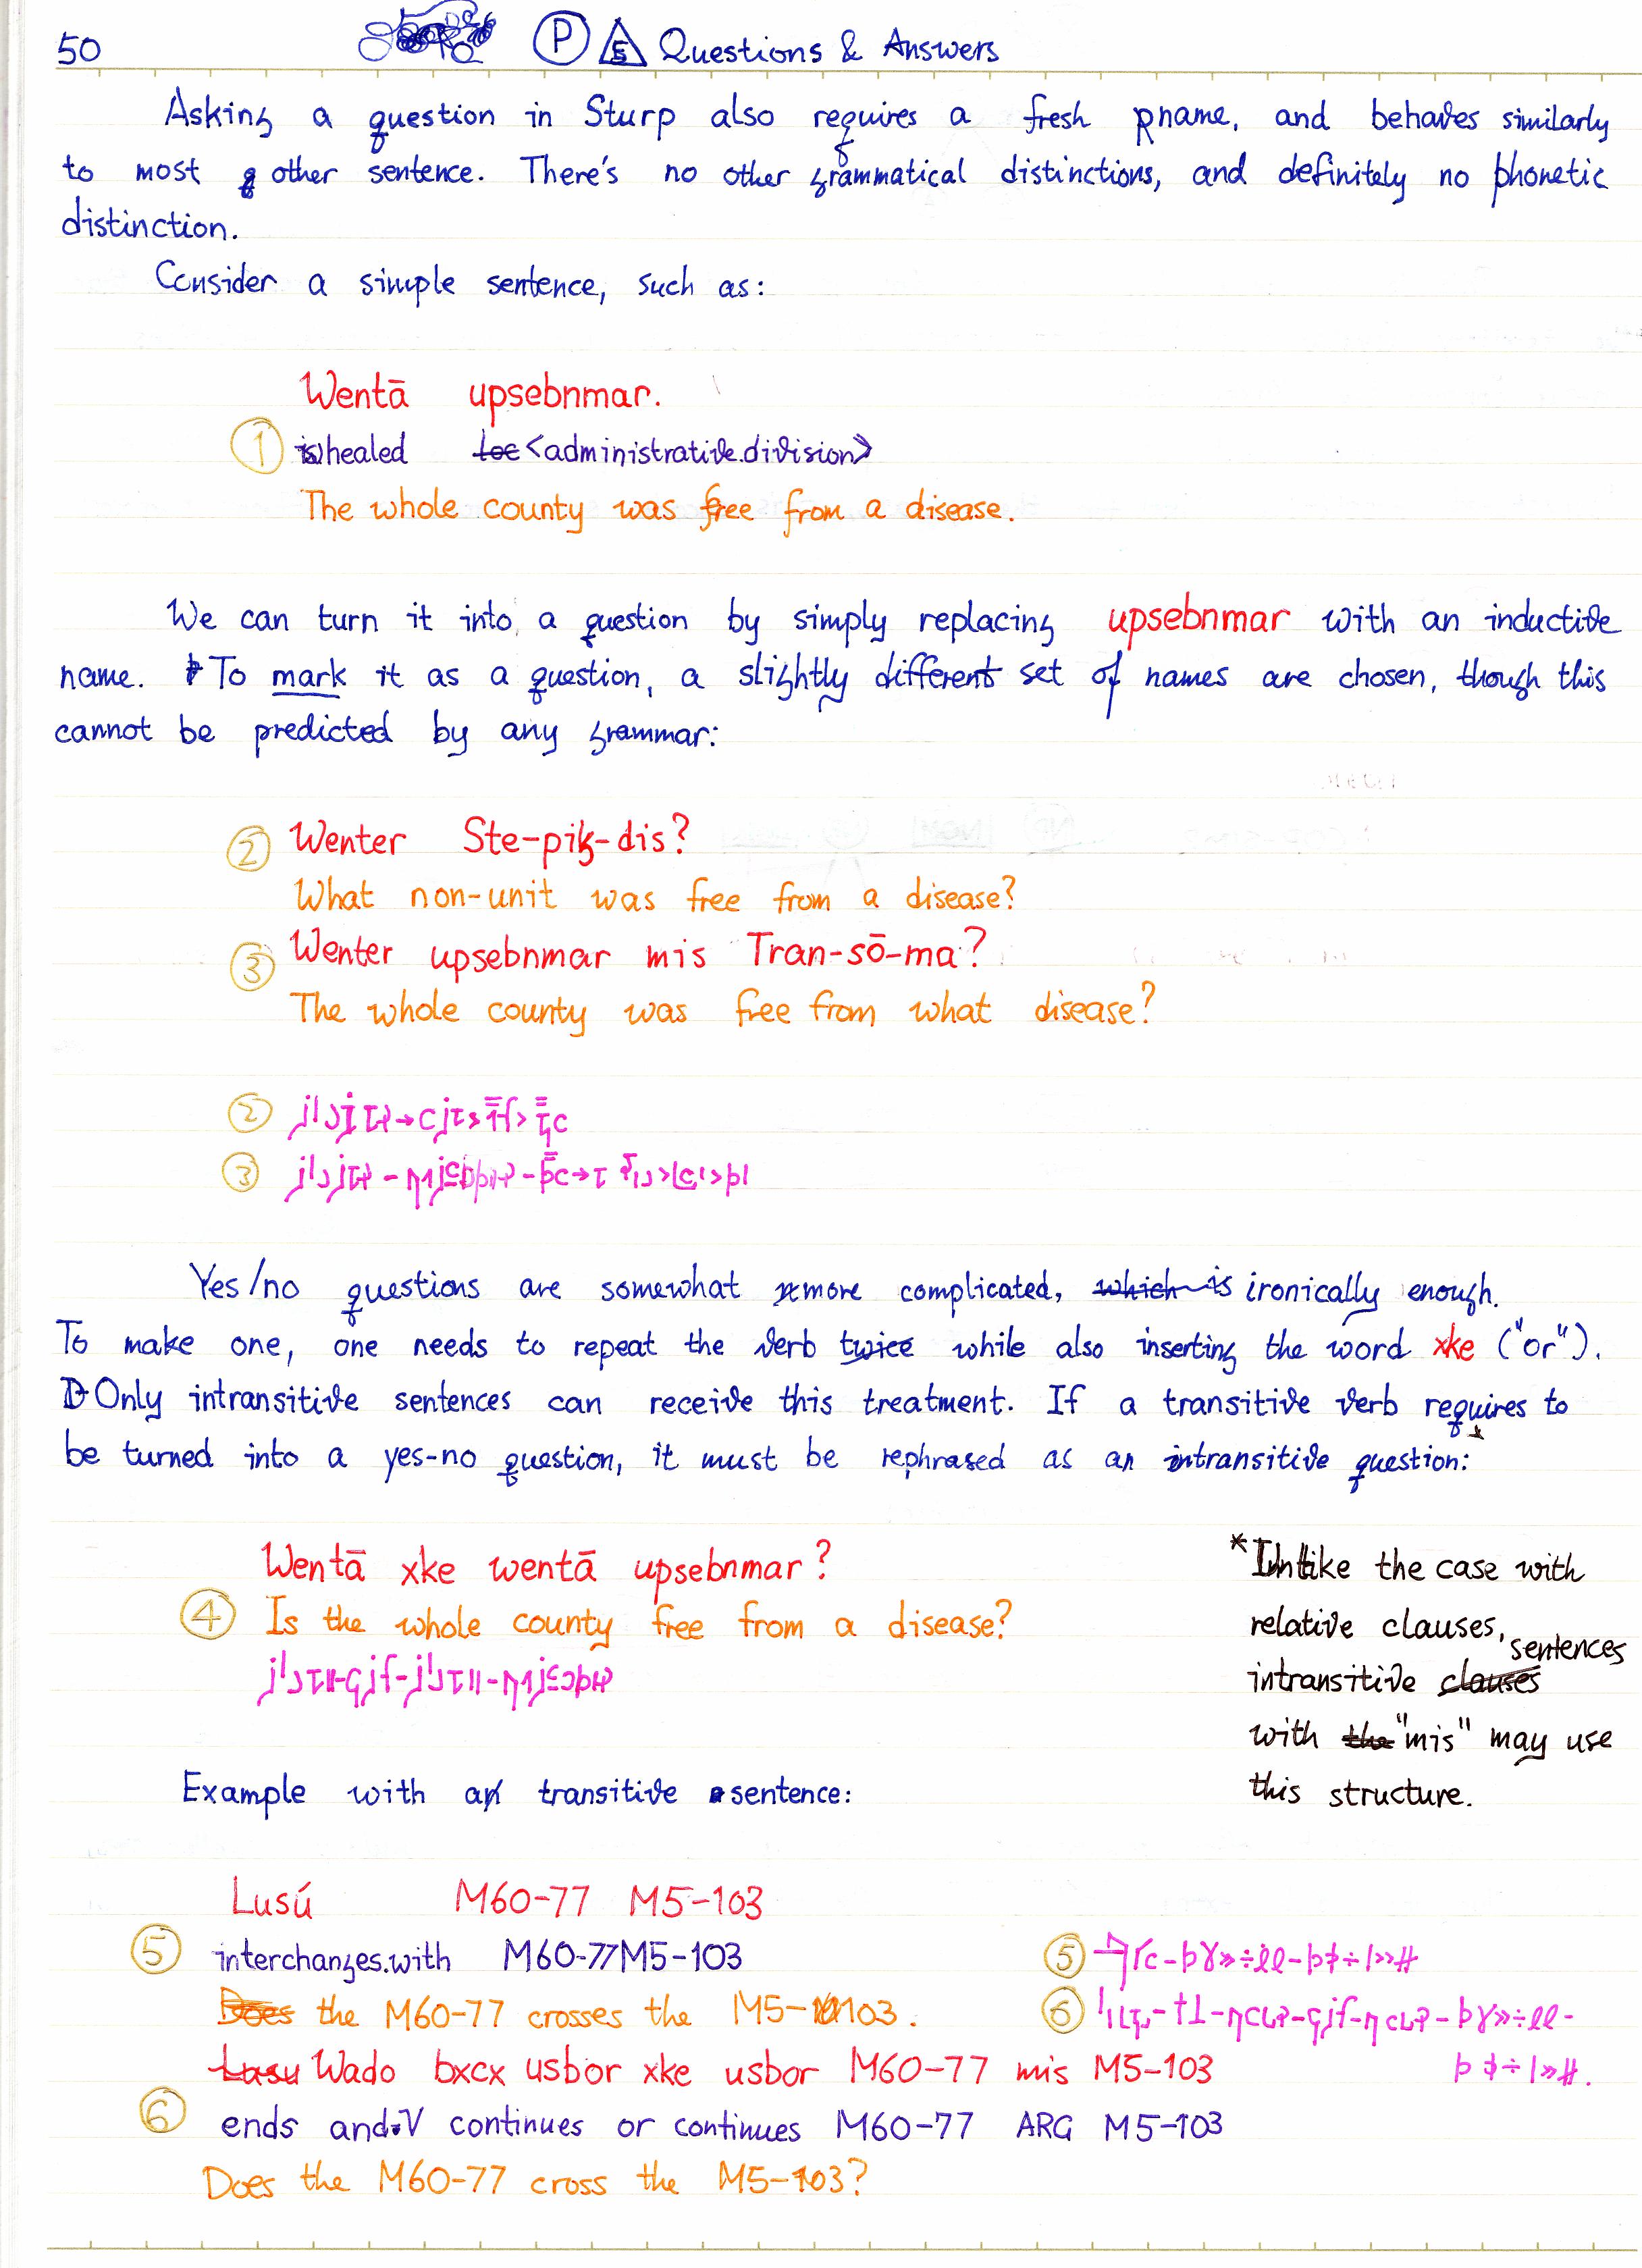 50 P 5 Questions & Answers
Asking a question in Sturp also requires a fresh pname, and behaves similarly
to most other sentence. There's no other grammatical distinctions, and definitely no phonetic
distinction.
Consider a simple sentence, such as:
Wentā upsebnmar.
① is)healed loc <administrative.division>
The whole county was free from a disease.
We can turn it into a question by simply replacing upsebnmar with an inductive
name. To mark it as a question, a slightly different set of names are chosen, though this
cannot be predicted by any grammar:
② Wenter Ste-pig-dis?
What non-unit was free from a disease?
③ Wenter upsebnmar mis Tran-sō-ma?
The whole county was free from what disease?
②
③
Yes/no questions are somewhat more complicated, which is ironically enough.
To make one, one needs to repeat the verb twice while also inserting the word xke ("or").
Only intransitive sentences can receive this treatment. If a transitive verb requires to
be turned into a yes-no question, it must be rephrased as an intransitive* question:
Wentā xke wentā upsebnmar?
④ Is the whole county free from a disease?
*Unlike the case with
relative clauses,
intransitive clauses sentences
with the "mis" may use
this structure.
Example with a transitive sentence:
Lusú M60-77 M5-103
⑤ interchanges.with M60-77 M5-103
Does the M60-77 crosses the M5-103.
Lusu Wado bxcx usbor xke usbor M60-77 mis M5-103
⑥ ends and.V continues or continues M60-77 ARG M5-103
Does the M60-77 cross the M5-103?
⑤
⑥